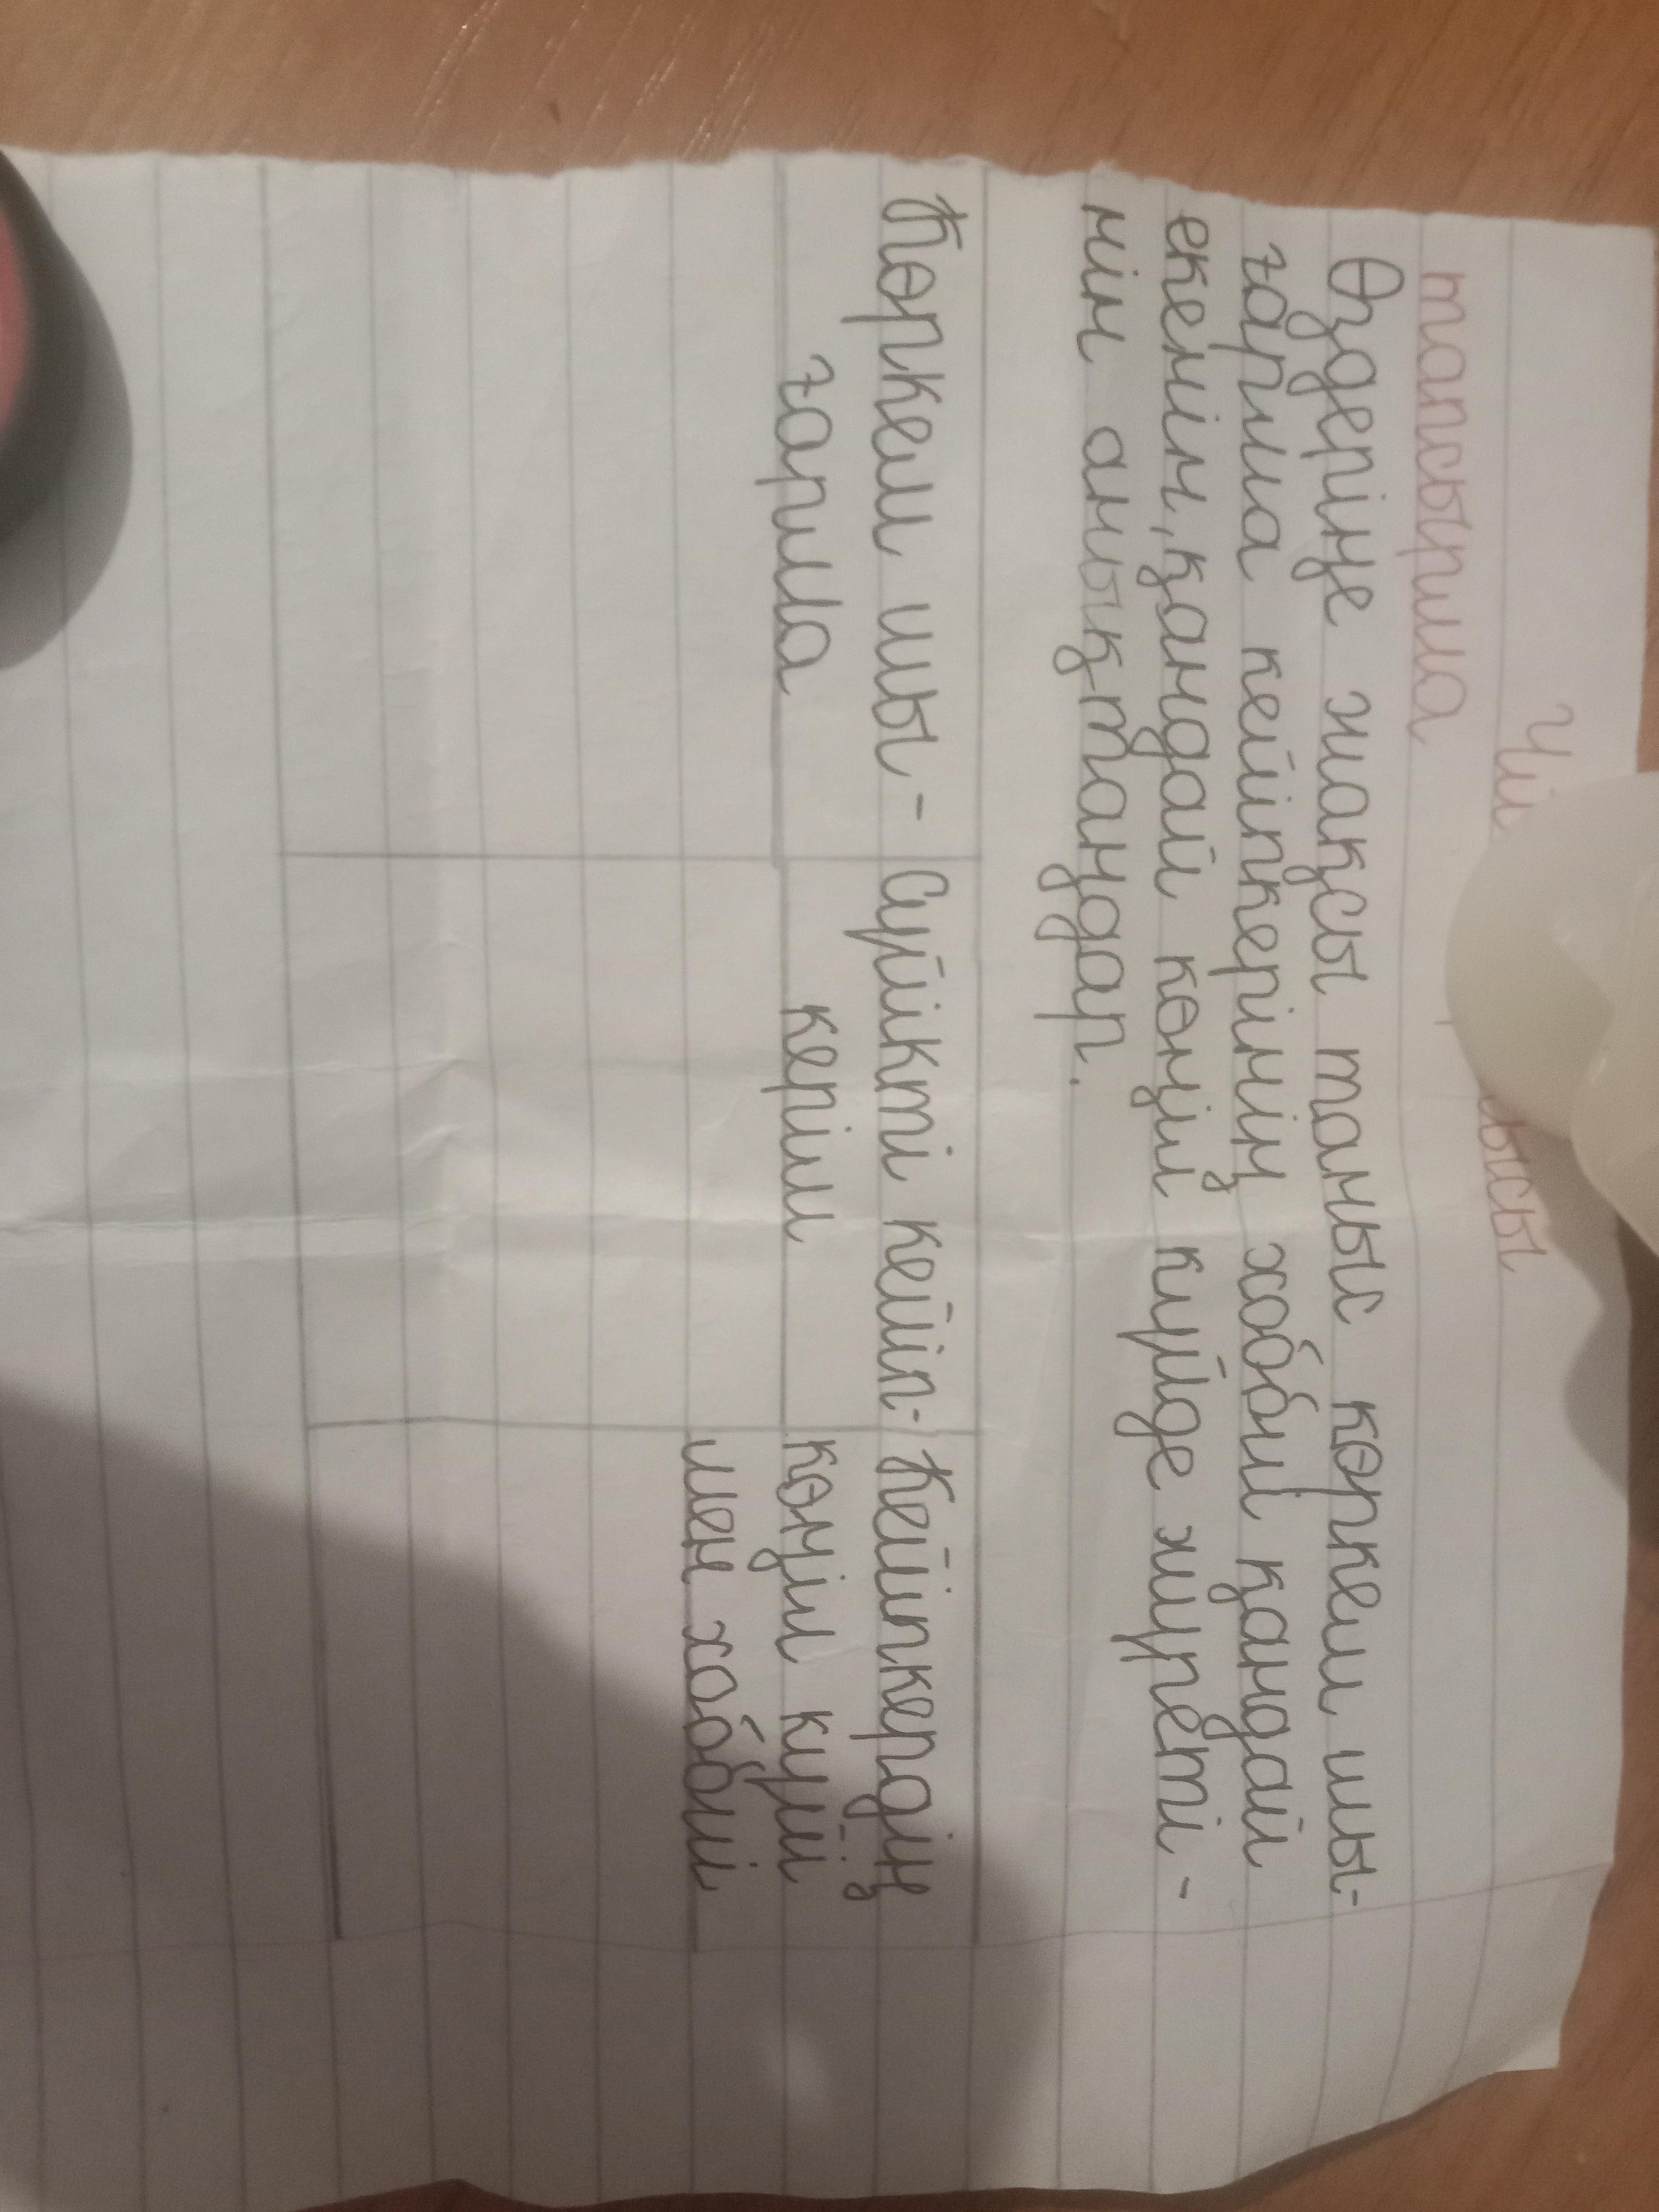 тапсырма
Өздеріңе жақсы таныс көркем шы-
ғарма кейіпкерінің хоббиі қандай
екенін, қандай көңіл күйде жүреті-
нін анықтаңдар.
Көркем шы-
ғарма
Сүйікті кейіп-
керім
Кейіпкердің
көңіл күйі
мен хоббиі